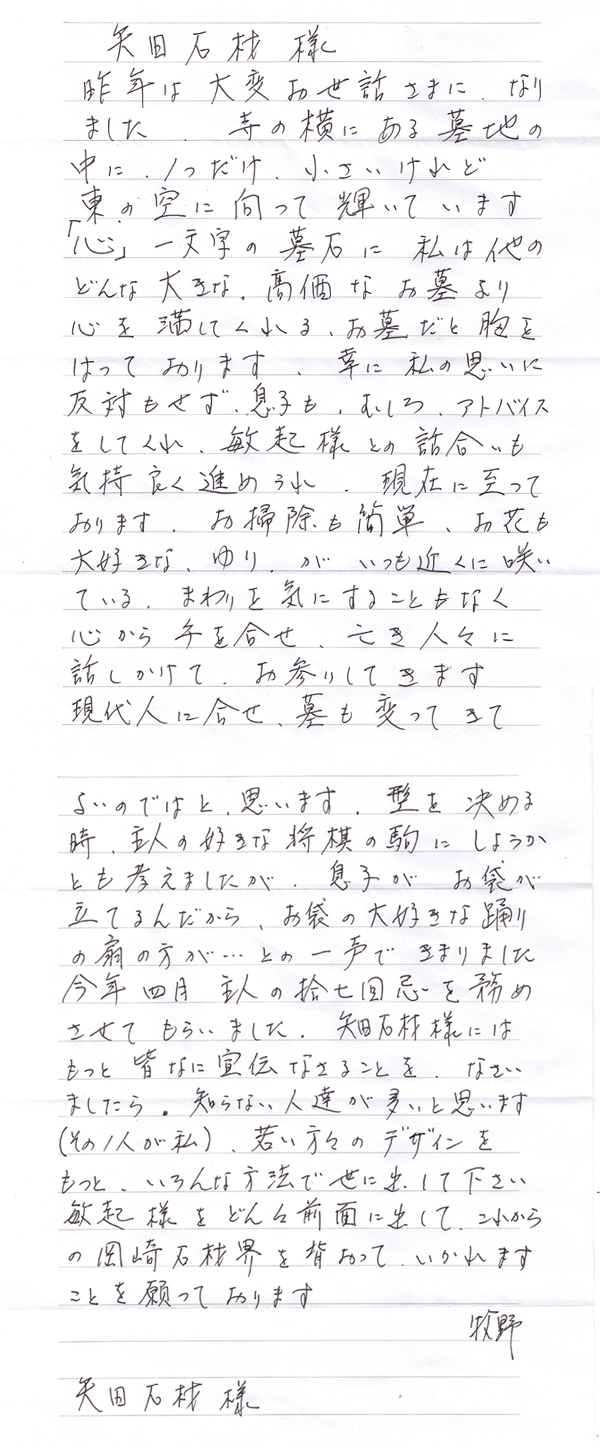 矢田石材 様
昨年は 大変お世話さまに、なり
ました 、 寺の横にある墓地の
中に、1つだけ、小さいけれど
東の空に向って 輝いています
「心」一文字の墓石に 私は他の
どんな大きな、高価なお墓より
心を満してくれる、お墓だと胸を
はっております 、 幸に 私の思いに
反対もせず、息子も、むしろ、アドバイス
をしてくれ、敏起様との話合いも
気持良く進められ 、 現在に至って
おります 、 お掃除も簡単 、お花も
大好きな、ゆり、が いつも近くに咲い
ている、まわりを気にすることもなく
心から手を合せ、亡き人々に
話しかけて、お参りしてきます
現代人に合せ、墓も変ってきて
よいのではと、思います、型を決める
時、主人の好きな将棋の駒にしようか
とも考えましたが、息子が お袋が
立てるんだから、お袋の大好きな踊り
の扇の方が…との一声できまりました
今年四月 主人の拾七回忌を務め
させてもらいました、矢田石材様には
もっと皆なに宣伝なさることを、なさい
ましたら。知らない人達が多いと思います
(その1人が私)、若い方々のデザインを
もっと、いろんな方法で世に出して下さい
敏起様をどんゝ前面に出して、これから
の岡崎石材界を背おって、いかれます
ことを願っております
牧野
矢田石材 様